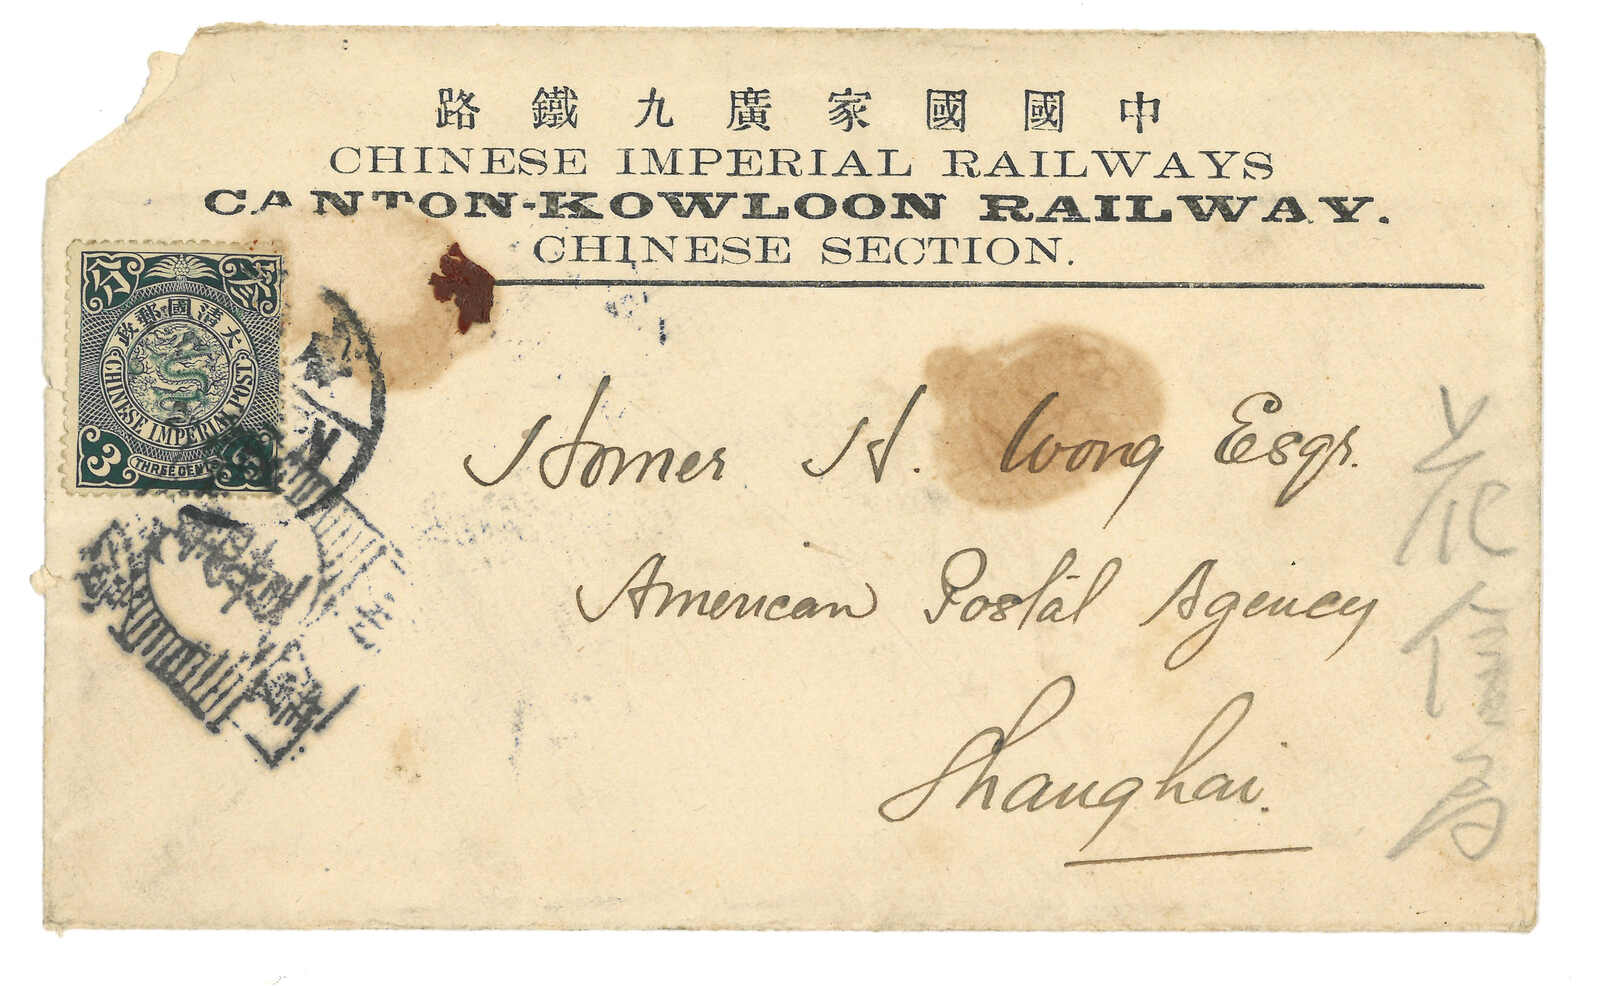 中國國家廣九鐵路
CHINESE IMPERIAL RAILWAYS
CANTON-KOWLOON RAILWAY.
CHINESE SECTION.
分 叄
大清國郵政
CHINESE IMPERIAL POST
3 THREE CENTS
Homer H. Wong Esqr.
American Postal Agency
Shanghai.
花信局